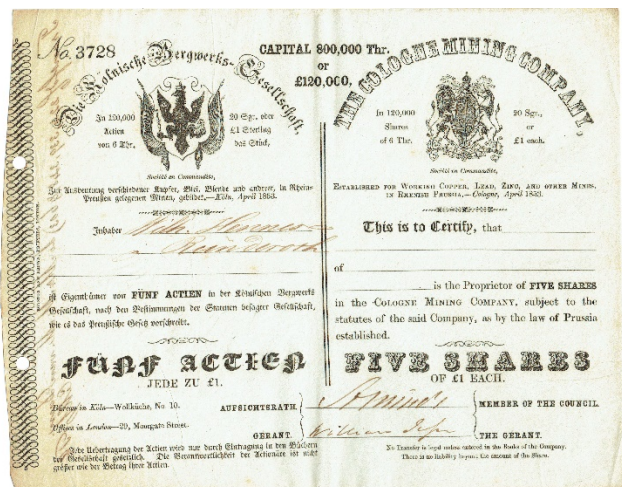 No. 3728
Die Kölnische Bergwerks-Gesellschaft,
In 120,000
Actien
von 6 Thr.
20 Sgr. oder
£1 Sterling
das Stück,
Société en Commandite,
Zur Ausbeutung verschiedener Kupfer, Blei, Blende und anderer, in Rhein-
Preußen gelegenen Minen, gebildet.—Köln, April 1853.
Inhaber
ist Eigenthümer von FÜNF ACTIEN in der Kölnischen Bergwerks
Gesellschaft, nach den Bestimmungen der Statuten besagter Gesellschaft,
wie es das Preußische Gesetz vorschreibt.
FÜNF ACTIEN
JEDE ZU £1.
Büreau in Köln—Wollküche, No. 10.
Office in London—29, Moorgate Street.
Jede Uebertragung der Actien wird nur durch Eintragung in den Büchern
der Gesellschaft gesetzlich. Die Verantwortlichkeit der Actionäre ist nicht
größer wie der Betrag ihrer Actien.
CAPITAL 800,000 Thr.
or
£120,000,
THE COLOGNE MINING COMPANY,
In 120,000
Shares
of 6 Thr.
20 Sgr.,
or
£1 each.
Société en Commandite,
ESTABLISHED FOR WORKING COPPER, LEAD, ZINC, AND OTHER MINES,
IN RHENISH PRUSSIA,—Cologne, April 1853.
This is to Certify, that
of
is the Proprietor of FIVE SHARES
in the COLOGNE MINING COMPANY, subject to the
statutes of the said Company, as by the law of Prussia
established.
FIVE SHARES
OF £1 EACH.
AUFSICHTSRATH,
MEMBER OF THE COUNCIL.
GERANT.
William
THE GERANT.
No Transfer is legal unless entered in the Books of the Company.
There is no liability beyond the amount of the Share.